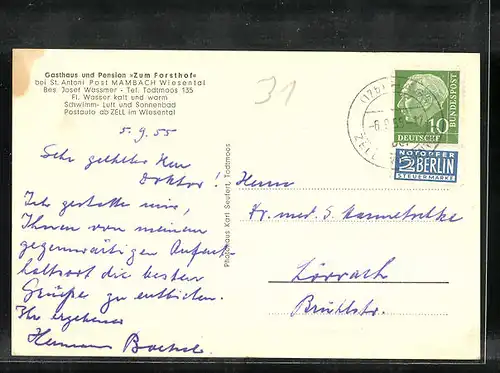 Gasthaus und Pension »Zum Forsthof«
bei St. Antoni Post MAMBACH Wiesental
Bes. Josef Wassmer - Tel. Todtmoos 135
Fl. Wasser kalt und warm
Schwimm- Luft und Sonnenbad
Postauto ab ZELL im Wiesental
31
5.9.55
Sehr geehrter Herr
Doktor!
Ich gestatte mir,
Ihnen von meinem
gegenwärtigen Aufent-
haltsort die besten
Grüße zu entbieten.
Ihr ergebener
Hermann
Photohaus Karl Seufert, Todtmoos
Herrn
Dr. med. S.
Lörrach
Brühlstr.
(17b)
ZELL
-6.9.55
10
DEUTSCHE
BUNDESPOST
NOTOPFER
2 BERLIN
STEUERMARKE